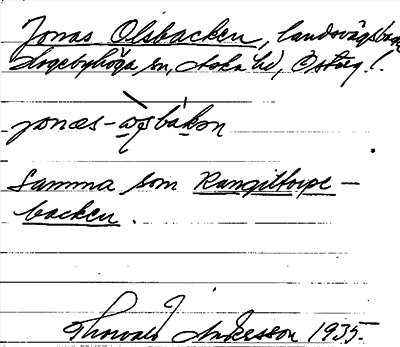 Jonas Olsbacken, landsvägsbacke
Hogebyhöga sn, Aska hd, Östерg.!
jonas-
Samma som Rangiltorpe-
backen.
Thorvald Andersson 1935.